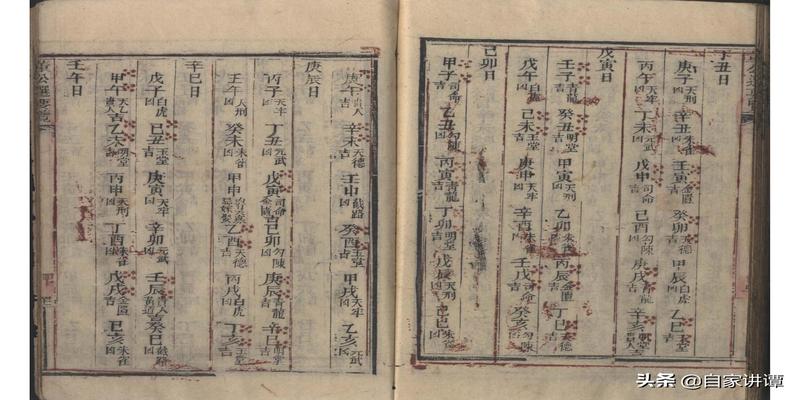 丁丑日
庚子天刑凶 辛丑朱雀凶 壬寅金匱吉 癸卯天德吉 甲辰白虎凶 乙巳玉堂吉
丙午天牢凶 丁未元武凶 戊申司命吉 己酉勾陳凶 庚戌青龍吉 辛亥明堂貴人
戊寅日
壬子青龍吉 癸丑明堂吉 甲寅天刑凶 乙卯朱雀凶 丙辰金匱吉 丁巳天德吉
戊午白虎凶 己未玉堂吉 庚申天牢凶 辛酉元武凶 壬戌司命吉 癸亥勾陳凶
己卯日
甲子司命吉 乙丑勾陳凶 丙寅青龍吉 丁卯明堂吉 戊辰天刑凶 己巳朱雀凶
庚午貴人吉 辛未天德吉 壬申截路凶 癸酉玉堂吉 甲戌天牢凶 乙亥元武凶
庚辰日
丙子天牢凶 丁丑元武凶 戊寅司命金匱吉 己卯勾陳凶 庚辰青龍吉 辛巳明堂吉
壬午天刑凶 癸未朱雀凶 甲申 乙酉天德吉 丙戌白虎凶 丁亥玉堂吉
辛巳日
戊子白虎凶 己丑玉堂吉 庚寅天牢凶 辛卯元武凶 壬辰貴人黃道吉 癸巳截路凶
甲午天乙貴人吉 乙未明堂吉 丙申天刑凶 丁酉朱雀凶 戊戌金匱吉 己亥朱雀凶
壬午日
董公選要覽
头条 @自家讲谭